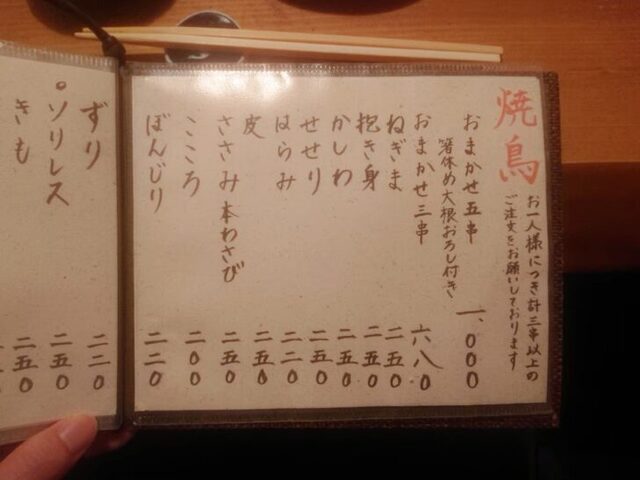 焼鳥
お一人様につき計三串以上の
ご注文をお願いしております
おまかせ五串 一、000
箸休め大根おろし付き
おまかせ三串 六八0
ねぎま 二五0
抱き身 二五0
かしわ 二五0
せせり 二五0
はらみ 二二0
皮 二五0
ささみ 本わさび 二五0
こころ 二00
ぼんじり 二二0
ずり 二二0
。ソリレス 二五0
きも 二五0